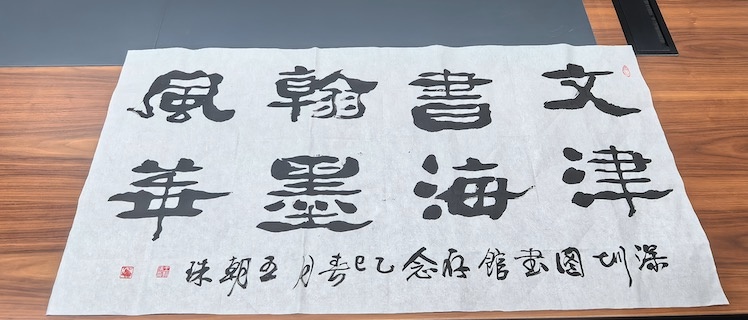 文津
書海
翰墨
風華
深圳圖書館存念乙巳春月王朝珠